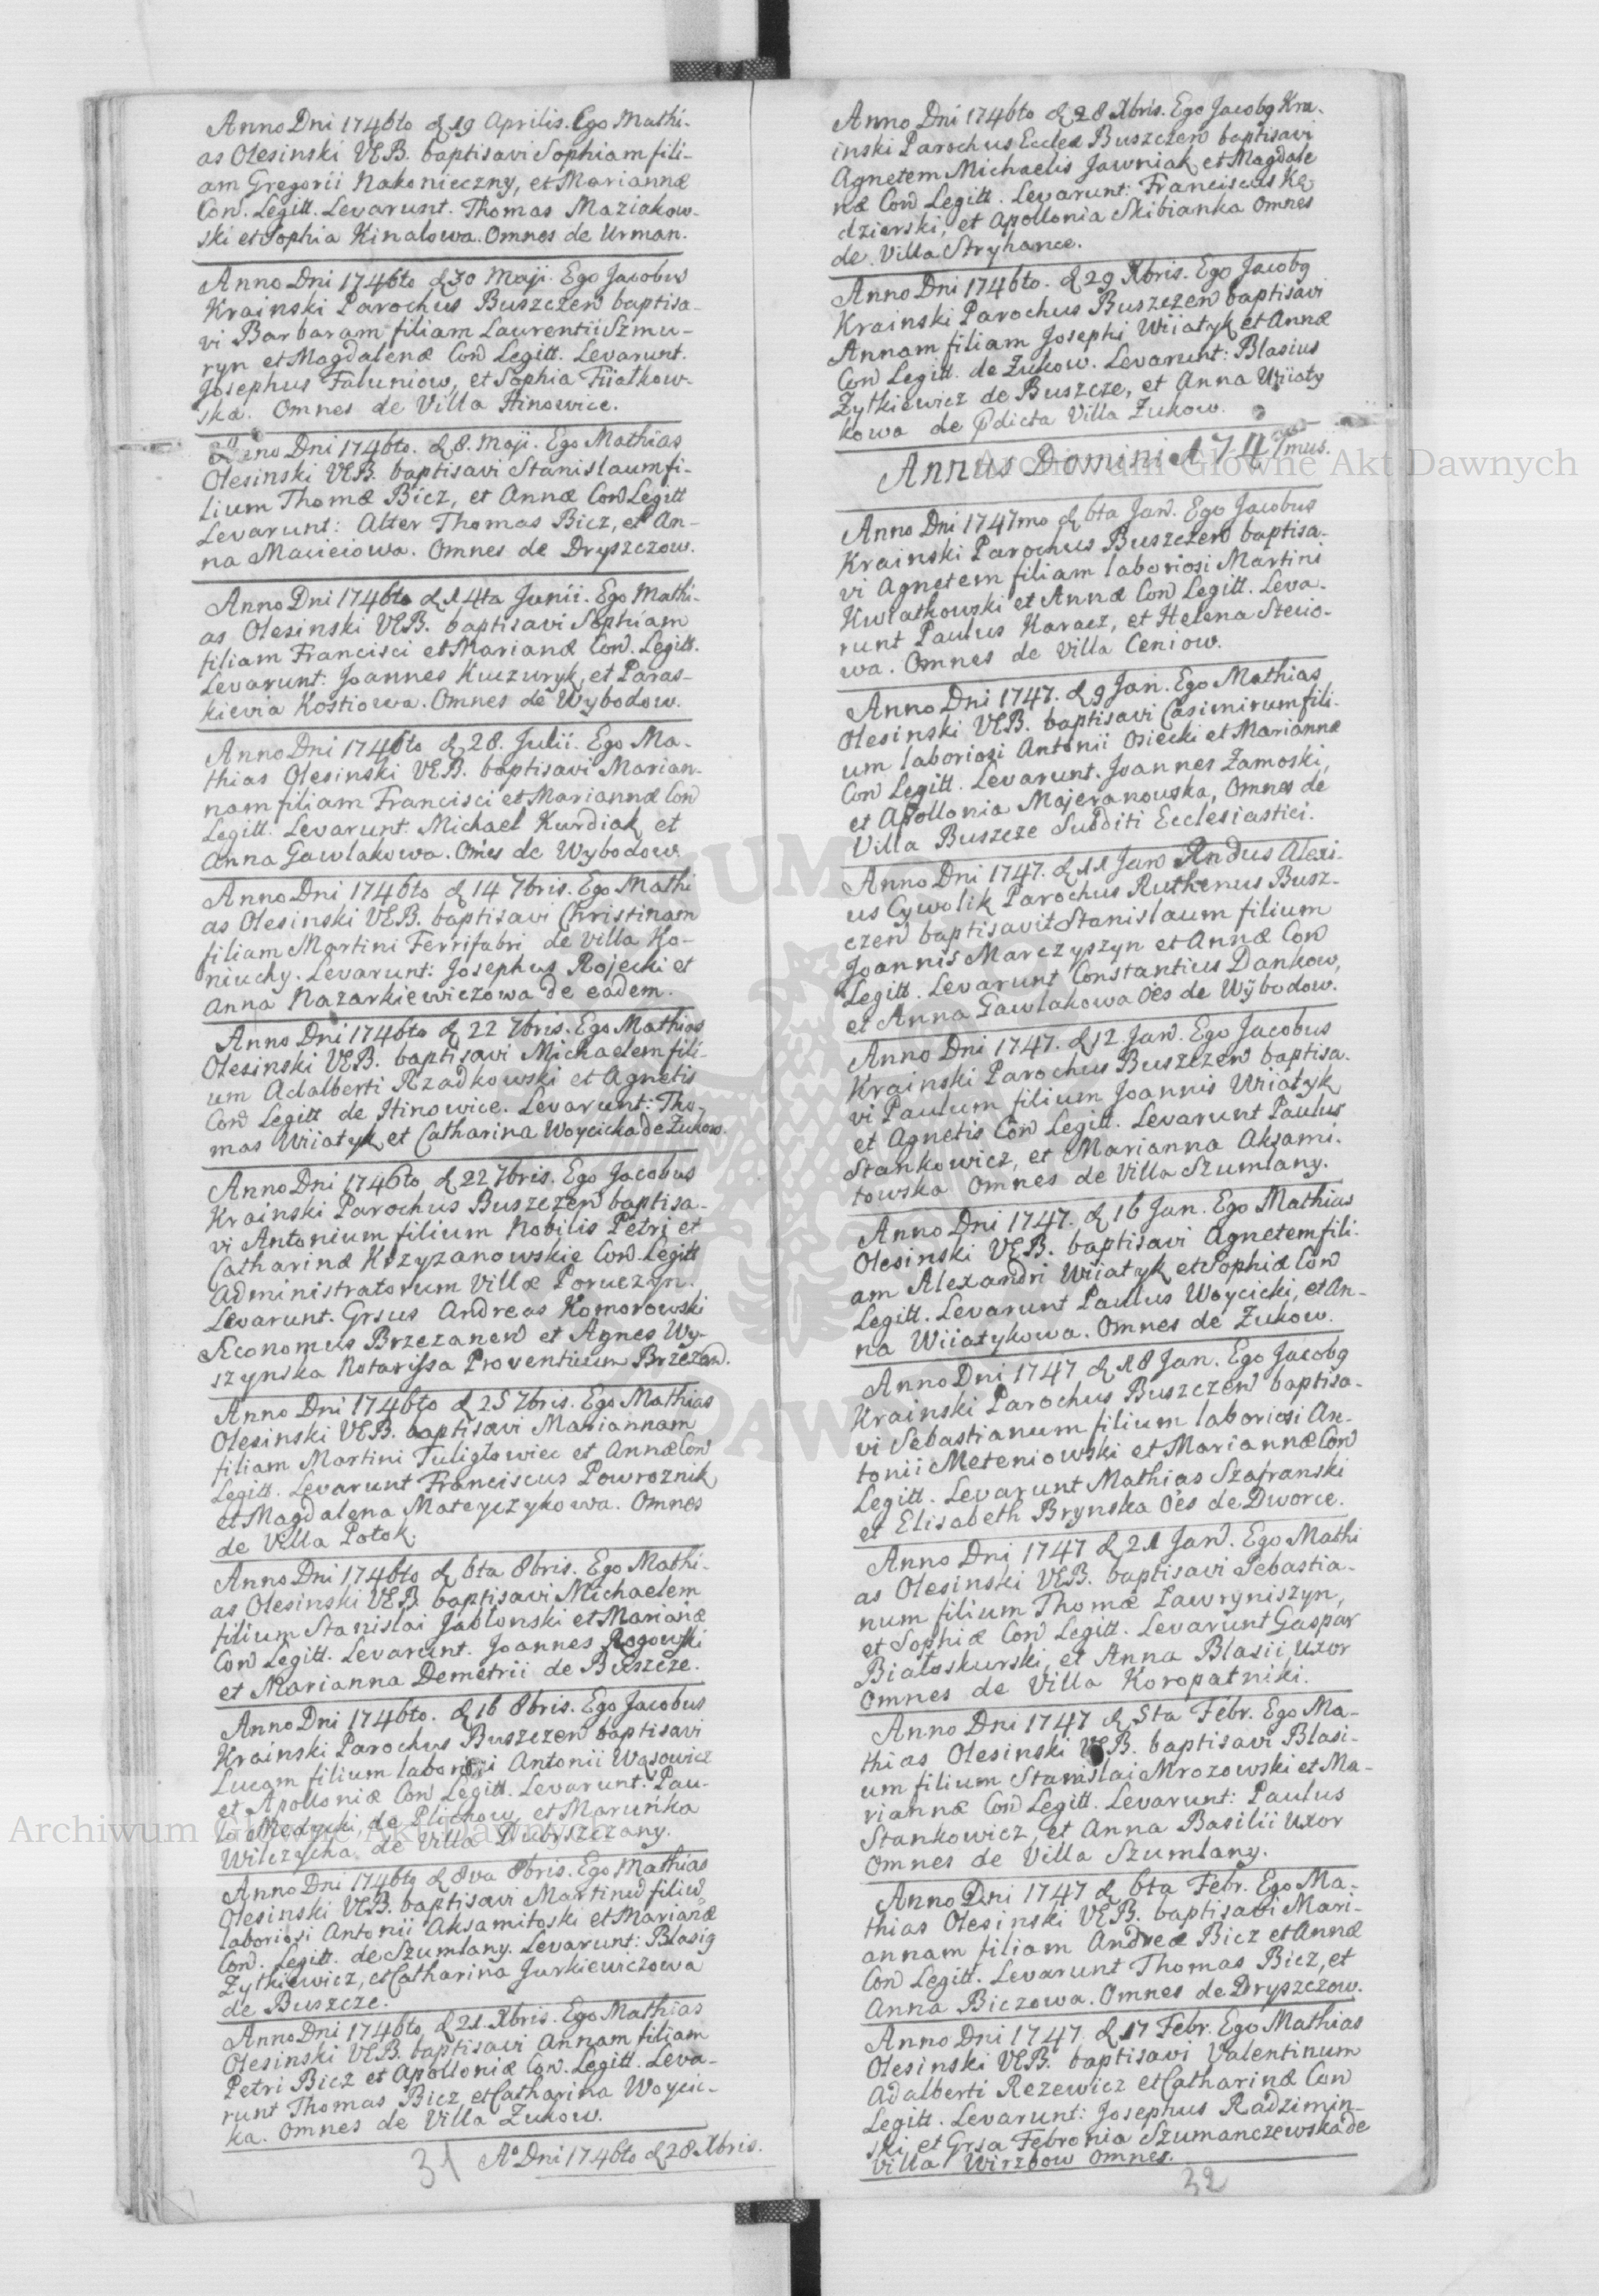 Anno Dni 1746to d 19 Aprilis. Ego Mathi-
as Olesinski VEB. baptisavi Sophiam fili-
am Gregorii Nakonieczny, et Mariannæ
Con. Legitt. Levarunt. Thomas Maziakow-
ski et Sophia Kinalowa. Omnes de Urman.
Anno Dni 1746to d 30 Maji. Ego Jacobus
Krainski Parochus Buszczen baptisa-
vi Barbaram filiam Laurentii Szmu-
ryn et Magdalenæ Con Legitt. Levarunt.
Josephus Faluniow, et Sophia Fiiatkow-
ska. Omnes de Villa Hinowice.
Anno Dni 1746to. d 8. Maji. Ego Mathias
Olesinski VEB. baptisavi Stanislaum fi-
lium Thomæ Bicz, et Annæ Con Legitt
Levarunt: Alter Thomas Bicz, et An-
na Macieiowa. Omnes de Dryszczow.
Anno Dni 1746to d 14ta Junii. Ego Mathi-
as Olesinski VEB. baptisavi Sophiam
filiam Francisci et Marianæ Con. Legitt.
Levarunt: Joannes Kuczuryk, et Paras-
kievia Kostiowa. Omnes de Wybodow.
Anno Dni 1746to d 28. Julii. Ego Ma-
thias Olesinski VEB. baptisavi Marian-
nam filiam Francisci et Mariannæ Con
Legitt. Levarunt. Michael Kurdiak et
Anna Gawlakowa. Om̄es de Wybodow.
Anno Dni 1746to d 14 7bris. Ego Mathi
as Olesinski VEB. baptisavi Christinam
filiam Martini Ferrifabri de Villa Ko-
niuchy. Levarunt: Josephus Rojecki et
Anna Nazarkiewiczowa de eadem.
Anno Dni 1746to d 22 7bris. Ego Mathias
Olesinski VEB. baptisavi Michaelem fili-
um Adalberti Rzadkowski et Agnetis
Con Legitt de Hinowice. Levarunt: Tho-
mas Wiiatyk et Catharina Woycicka de Zukow.
Anno Dni 1746to d 22 7bris. Ego Jacobus
Krainski Parochus Buszczen baptisa-
vi Antonium filium Nobilis Petri et
Catharinæ Krzyzanowskie Con Legitt
Administratorum Villæ Poruczyn.
Levarunt. Grsus Andreas Komorowski
Æconomus Brzezanen et Agnes Wy-
szynska Notarissa Proventuum Brzezan.
Anno Dni 1746to d 25 7bris. Ego Mathias
Olesinski VEB. baptisavi Mariannam
filiam Martini Tuliglowiec et Annæ Con
Legitt. Levarunt Franciscus Powroznik
et Magdalena Mateyczykowa. Omnes
de Villa Potok.
Anno Dni 1746to d 6ta 8bris. Ego Mathi-
as Olesinski VEB. baptisavi Michaelem
filium Stanislai Jablonski et Marianæ
Con Legitt. Levarunt. Joannes Rogowski
et Marianna Demetrii de Buszcze.
Anno Dni 1746to. d 16 8bris. Ego Jacobus
Krainski Parochus Buszczen baptisavi
Lucam filium laboriosi Antonii Wąsowicz
et Apolloniæ Con Legitt. Levarunt: Pau-
lo Medycki de Plichow, et Marunka
Wilczycha de Villa Dubrszczany.
Anno Dni 1746to d 8va 8bris. Ego Mathias
Olesinski VEB. baptisavi Martinū filiū
laboriosi Antonii Aksamitoski et Marianæ
Con. Legitt. de Szumlany. Levarunt: Blasig
Zytkiewicz, et Catharina Jurkiewiczowa
de Buszcze.
Anno Dni 1746to d 21. Xbris. Ego Mathias
Olesinski VEB. baptisavi Annam filiam
Petri Bicz et Apolloniæ Con. Legitt. Leva-
runt Thomas Bicz et Catharina Woycic-
ka. Omnes de Villa Zukow.
31 Aº Dni 1746to d 28 Xbris.
Anno Dni 1746to d 28 Xbris. Ego Jacobg Kra-
inski Parochus Eccleæ Buszczen baptisavi
Agnetem Michaelis Jawniak et Magdale
næ Con Legitt. Levarunt: Franciscus Kę
dzierski, et Apollonia Skibianka Omnes
de Villa Stryhance.
Anno Dni 1746to. d 29 Xbris. Ego Jacobg
Krainski Parochus Buszczen baptisavi
Annam filiam Josephi Wiiatyk et Annæ
Con Legitt. de Zukow. Levarunt: Blasius
Zytkiewicz de Buszcze, et Anna Wiiaty
kowa de pdicta Villa Zukow.
Annus Domini 1747mus.
Anno Dni 1747mo d 6ta Jan. Ego Jacobus
Krainski Parochus Buszczen baptisa-
vi Agnetem filiam laboriosi Martini
Kwiatkowski et Annæ Con Legitt. Leva-
runt Paulus Karacz, et Helena Stecio-
wa. Omnes de Villa Ceniow.
Anno Dni 1747. d 9 Jan. Ego Mathias
Olesinski VEB. baptisavi Casimirum fili-
um laboriosi Antonii Osiecki et Mariannæ
Con Legitt. Levarunt. Joannes Zamoski,
et Apollonia Majeranowska, Omnes de
Villa Buszcze Subditi Ecclesiastici.
Anno Dni 1747. d 11 Jan Rndus Alexi-
us Cywolik Parochus Ruthenus Busz-
czen baptisavit Stanislaum filium
Joannis Marczyszyn et Annæ Con
Legitt. Levarunt Constantius Dankow,
et Anna Gawlakowa Oēs de Wybodow.
Anno Dni 1747. d 12 Jan. Ego Jacobus
Krainski Parochus Buszczen baptisa-
vi Paulum filium Joannis Wiiatyk
et Agnetis Con Legitt. Levarunt Paulus
Stankowicz, et Marianna Aksami-
towska Omnes de Villa Szumlany.
Anno Dni 1747. d 16 Jan. Ego Mathias
Olesinski VEB. baptisavi Agnetem fili-
am Alexandri Wiiatyk et Sophiæ Con
Legitt. Levarunt Paulus Woycicki, et An-
na Wiiatykowa. Omnes de Zukow.
Anno Dni 1747 d 18 Jan. Ego Jacobg
Krainski Parochus Buszczen baptisa-
vi Sebastianum filium laboriosi An-
tonii Meteniowski et Mariannæ Con
Legitt. Levarunt Mathias Szafranski
et Elisabeth Brynska Oēs de Dworce.
Anno Dni 1747 d 21 Jan. Ego Mathi
as Olesinski VEB. baptisavi Sebastia-
num filium Thomæ Lawryniszyn,
et Sophiæ Con Legitt. Levarunt Gaspar
Bialoskurski, et Anna Blasii Uxor
Omnes de Villa Koropatniki.
Anno Dni 1747 d 5ta Febr. Ego Ma-
thias Olesinski VEB. baptisavi Blasi-
um filium Stanislai Mrozowski et Ma-
riannæ Con Legitt. Levarunt: Paulus
Stankowicz, et Anna Basilii Uxor
Omnes de Villa Szumlany.
Anno Dni 1747 d 6ta Febr. Ego Ma-
thias Olesinski VEB. baptisavi Mari-
annam filiam Andreæ Bicz et Annæ
Con Legitt. Levarunt Thomas Bicz, et
Anna Biczowa. Omnes de Dryszczow.
Anno Dni 1747 d 17 Febr. Ego Mathias
Olesinski VEB. baptisavi Valentinum
Adalberti Rezewicz et Catharinæ Con
Legitt. Levarunt: Josephus Radzimin-
ski et Grsa Febronia Szumanczewska de
Villa Wirzbow Omnes.
32
Archiwum Główne Akt Dawnych
Archiwum Główne Akt Dawnych